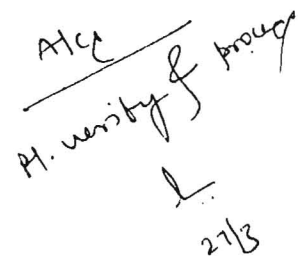 A/cs
Pl. verify & process
27/3